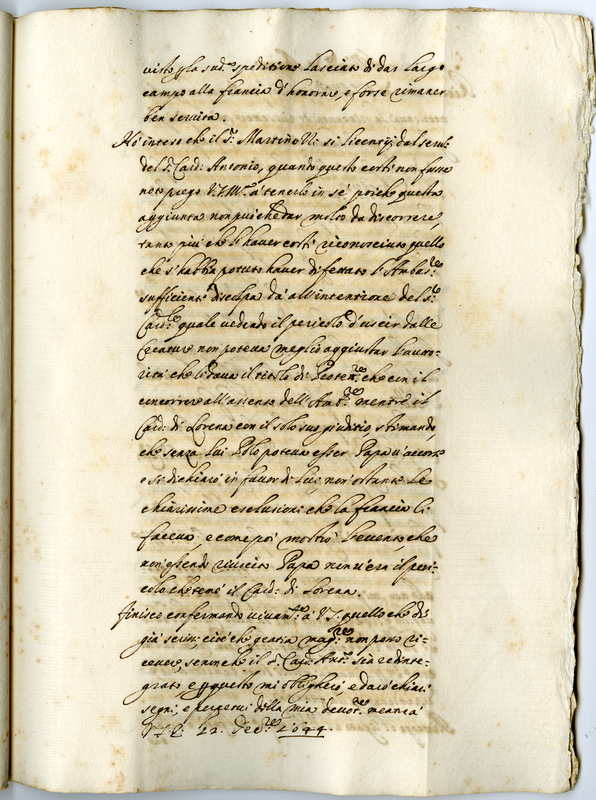 visto p la sud.ª speditione lasciato di dar largo
campo alla francia d'honorar, e forse rimaner
ben servita.
Hò inteso che il S.r Martino V: si licentij dal serv:
del S.r Card: Antonio, quando questo certi non fusse
noto prego V.S. Ill.ma à tenerlo in sé poiche questa
aggiunta non può che dar molto da discorrere,
tanto più che l'haver così riconosciuto quello
che s'habbia potuto haver difettato l'Ambas.re
sufficiente discolpa dà all'intentione del S.r
Card.le quale vedendo il pericolo d'uscir dalle
Creature non poteva meglio aggiustar l'auto-
rità che li dava il titolo di Protett.re che con il
concorrer all'assenso dell'Amb.re mentre il
Card: di Lorena con il solo suo giuditio stimando,
che senza lui Polo poteva esser Papa v'accorse
e si dichiarò in favor di lui, non'ostante le
chiarissime esclusioni che la francia li
faceva, e come poi mostrò l'evento, che
non essendo riuscito Papa non v'era il peri-
colo che temè il Card: di Lorena.
finisco confermando vivam.te à V.S. quello che di
già scrissi, cioè che gratia mag.re non posso ri-
cever, se non che il S.r Card: Ant.o sia redinte-
grato e p questo mi obligherò, e darò chiari
segni, e perpetui della mia devot.ne mentre à
22: Dec.re 1644.